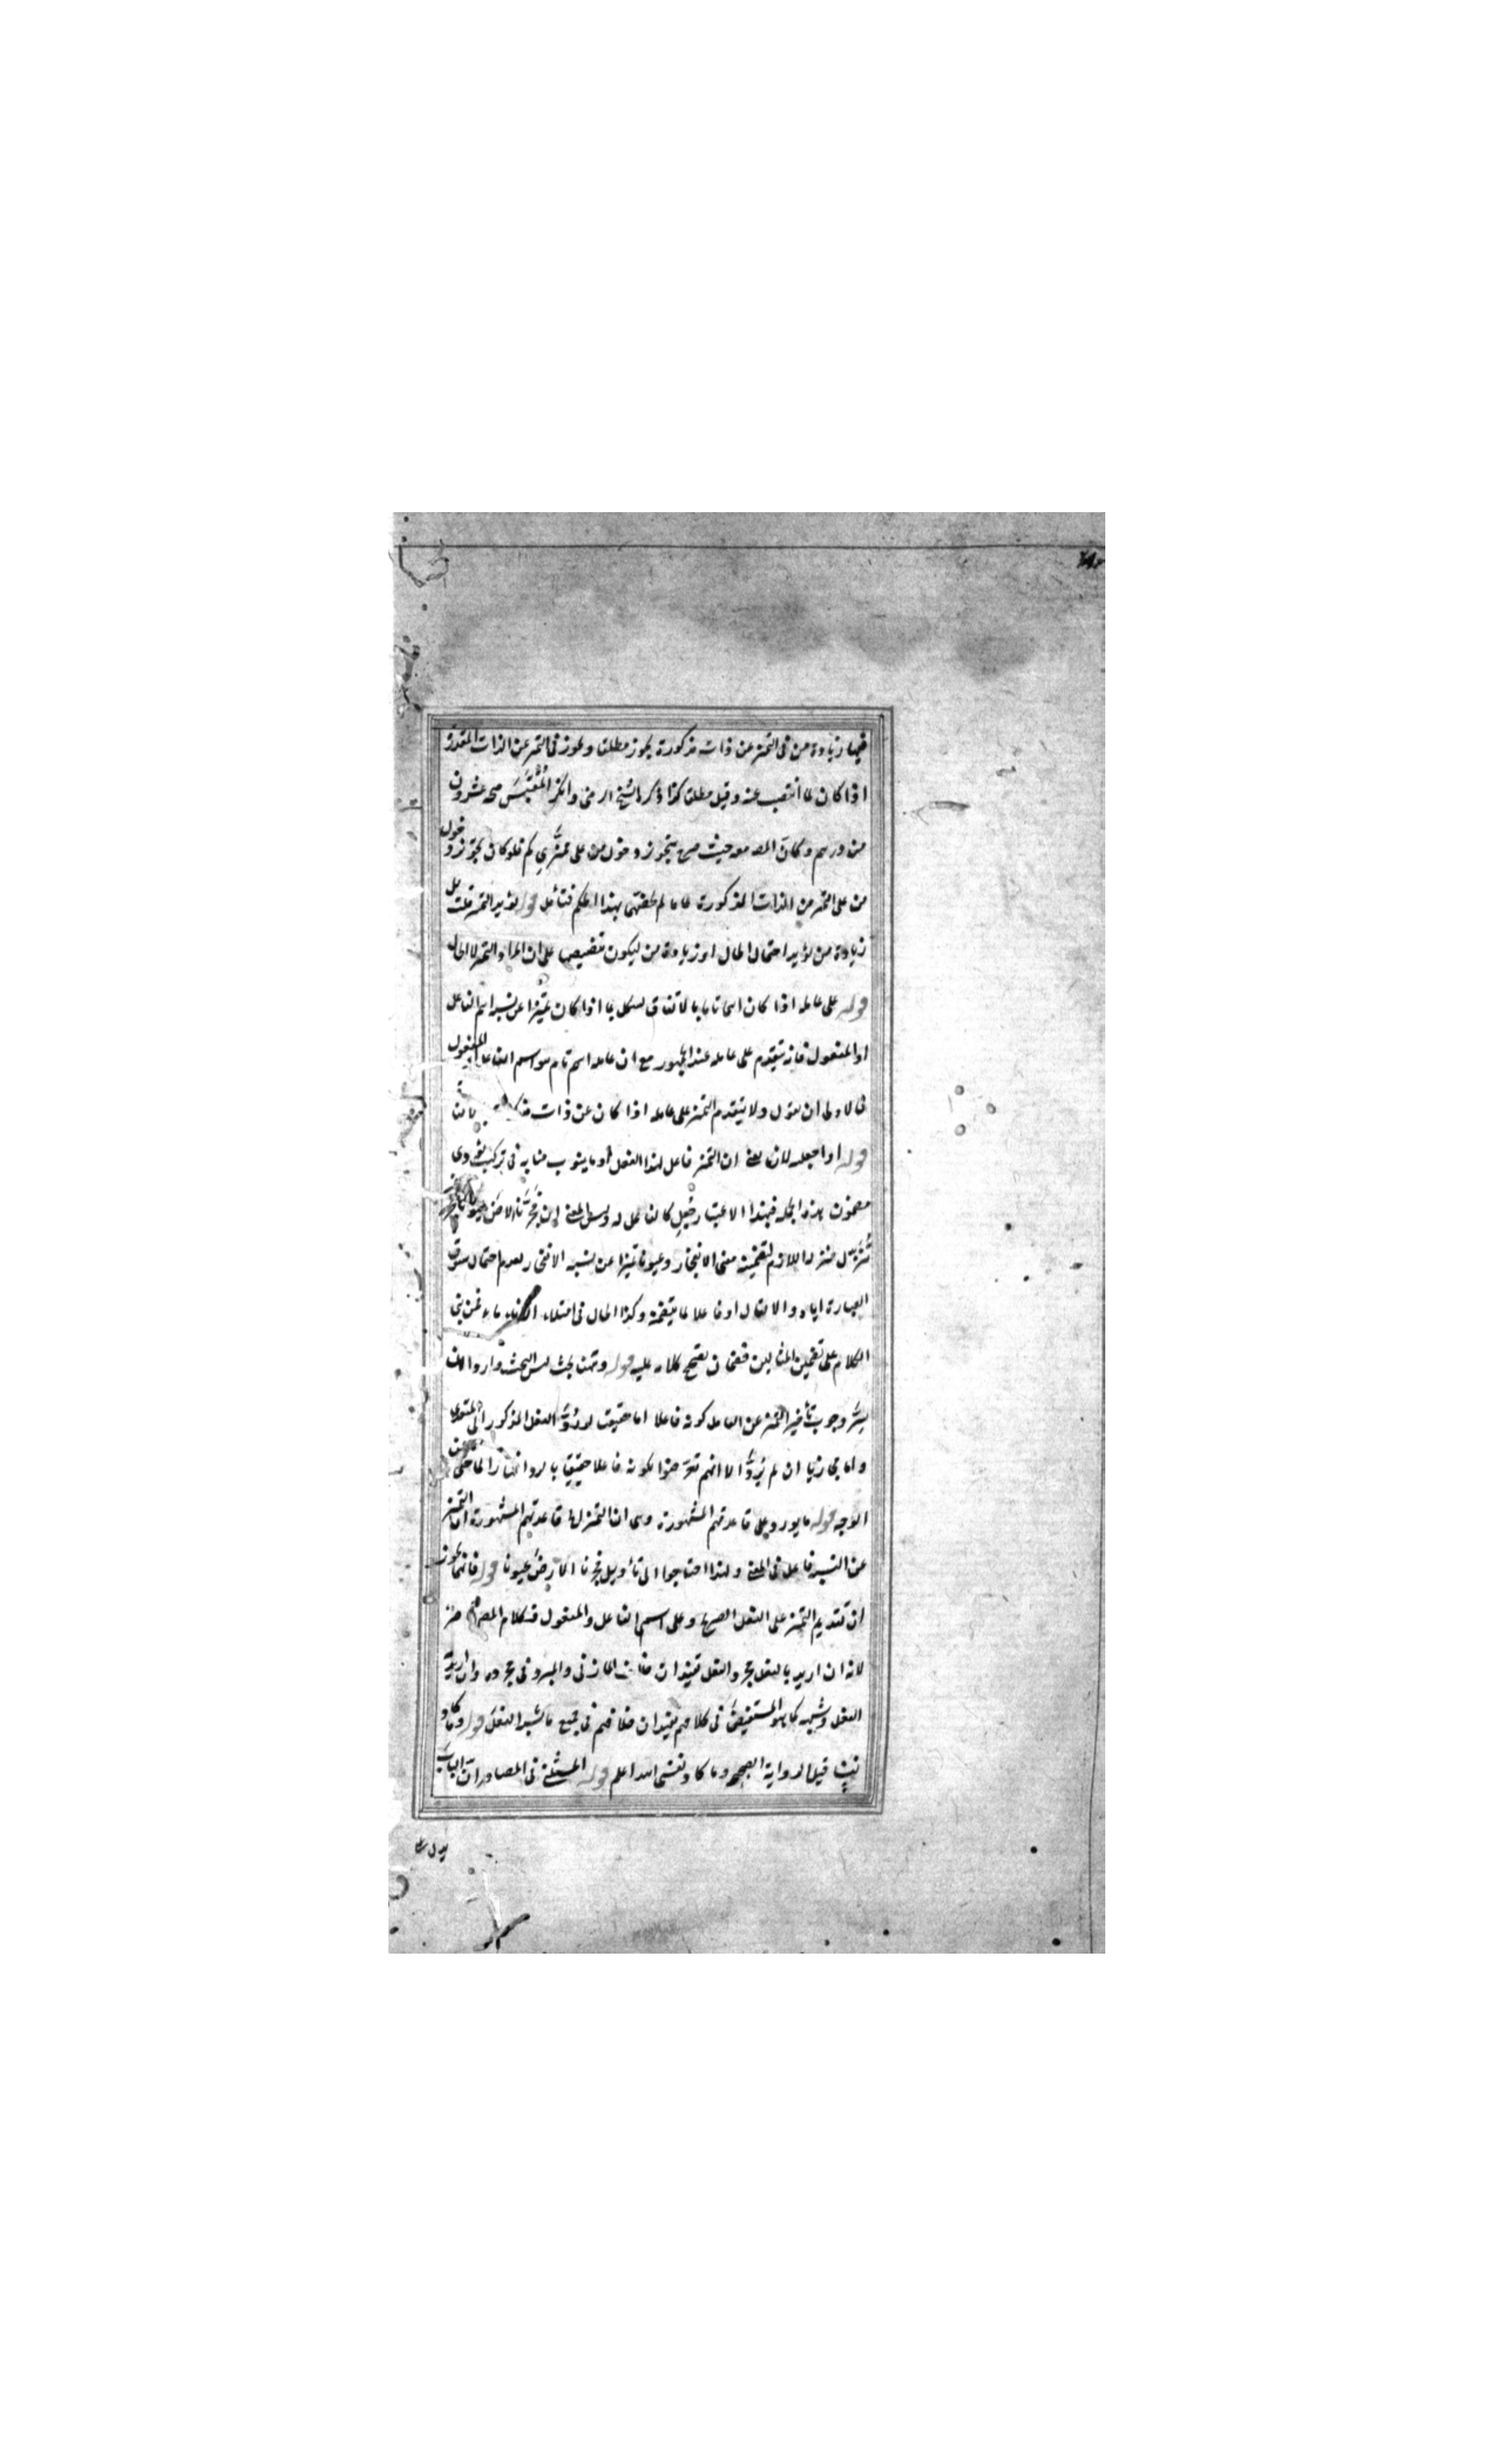 فيها زيادة من فى التمييز عن ذات مذكورة يجوز مطلقا ويجوز فى التمييز عن الذات المقدرة
اذا كان لما انتصب عنه وقيل مطلقا كذا ذكره الشيخ الرضى وانكر المقتبس صحة عشرون
من درهم وكان المصـ معه حيث صرح بتجويز دخول من على مميزى كم فلو كان يجوز دخول
من على التمييز من الذات المذكورة لما لم يخصهما بهذا الحكم فتأمل قوله
زيادة من يؤيد احتمال الحال او زيادة من ليكون تنصيصا على ان المراد التمييز لا الحال
قوله على عامله اذا كان اسما تاما بالاتفاق يشكل بما اذا كان تمييزا عن نسبة اسم الفاعل
او المفعول فانه يتقدم على عامله عند الجمهور مع ان عامله اسم تام هو اسم الفاعل والمفعول
فالاولى ان يقول ولا يتقدم التمييز على عامله اذا كان عن ذات
قوله او اجعله لان يعنى ان التمييز فاعل لهذا الفعل او ما ينوب منابه فى تركيب يؤدى
مضمون هذه الجملة فبهذا الاعتبار جُعِل كالفاعل له وليس المعنى ان فجّرنا الارض عيونا
تُنزَّل منزلة اللازم لتضمينه معنى الانفجار وعيونا تميزا عن نسبة الانفجار لعدم احتمال سوق
العبارة اياه والا لقال او فاعلا لما يتضمنه وكذا الحال فى امتلاء الاناء ماء فمن بنى
الكلام على تضمين المثالين فعليه ان يصحح كلامه عليه قوله وههنا بحث ليس البحث واردا لان
سِرّ وجوب تأخير التمييز عن العامل كونه فاعلا اما حقيقة لو رُدَّ الفعل المذكور الى المتعدى
واما مجازيا ان لم يُردَّ الا انهم تعرضوا لكونه فاعلا حقيقيا بالرد
الوجه قوله ما يورد على قاعدتهم المشهورة وهى ان التمييز قاعدتهم المشهورة ان التمييز
عن النسبة فاعل فى المعنى ولهذا احتاجوا الى تأويل فجرنا الارض عيونا قوله فانهما يجوز
ان تقديم التمييز على الفعل الصريح وعلى اسمى الفاعل والمفعول فكلام المصـ
لانه ان اريد بالفعل مجرد الفعل يفيد ان خلاف المازنى والمبرد فى مجرده وان اريد
الفعل وشبهه كما هو المستفيض فى كلامهم يفيد ان خلافهم فى جميع ما يشبه الفعل قوله وما كاد
نفسا قيل الرواية الصحيحة وما كاد نفسى الله اعلم قوله المستثنى فى المصادر ان الباب
يدل على